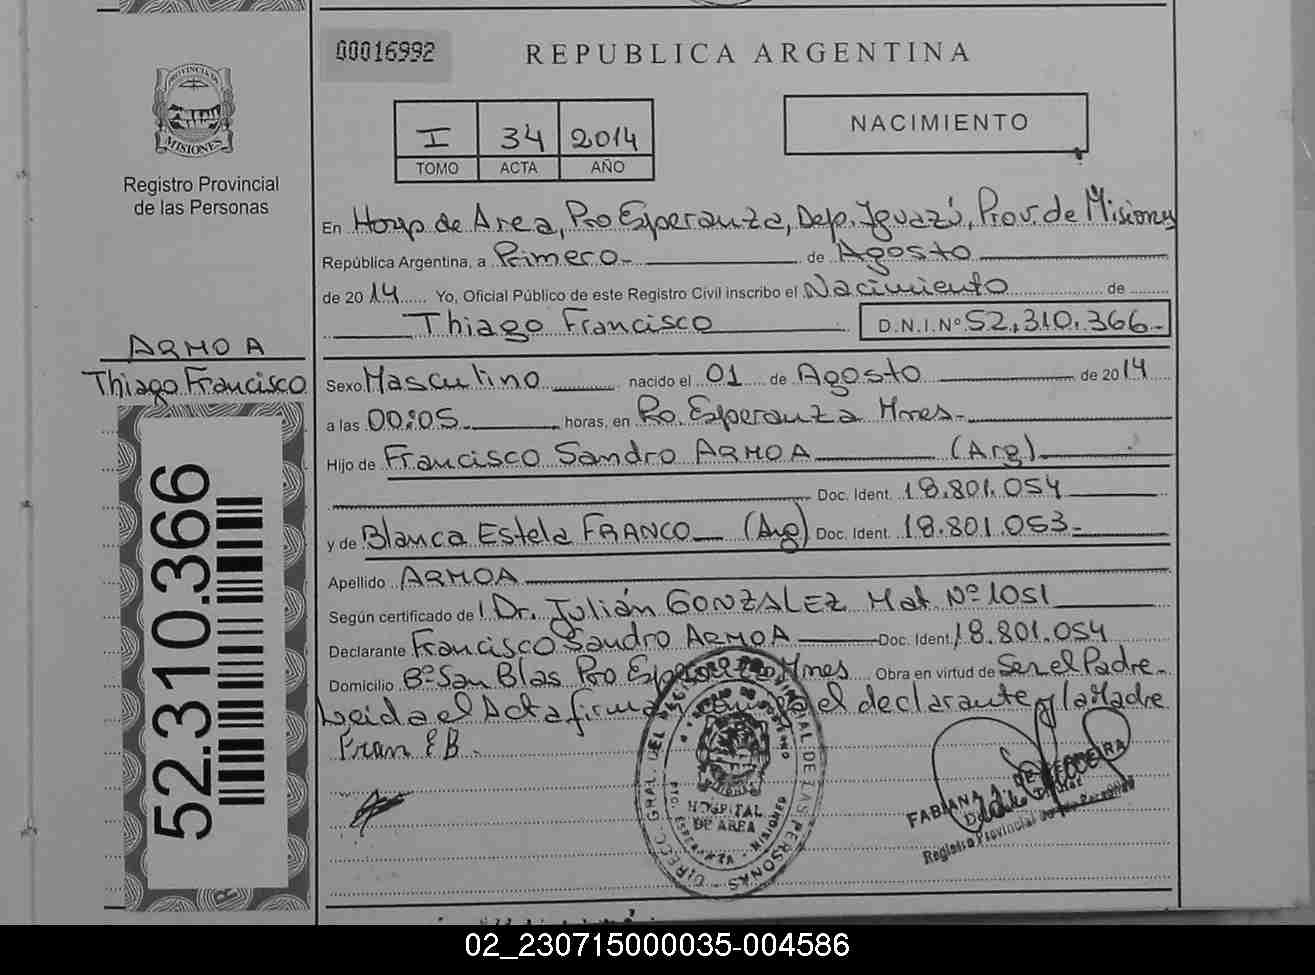 00016992
REPUBLICA ARGENTINA
PROVINCIA DE
MISIONES
Registro Provincial
de las Personas
I 34 2014
TOMO ACTA AÑO
NACIMIENTO
En Hosp de Area, Pto Esperanza, Dep. Iguazú, Prov. de Misiones
República Argentina, a Primero de Agosto
de 2014 Yo, Oficial Público de este Registro Civil inscribo el Nacimiento de
Thiago Francisco D.N.I.Nº 52.310.366
ARMOA
Thiago Francisco
52.310.366
Sexo Masculino nacido el 01 de Agosto de 2014
a las 00:05 horas, en Pto. Esperanza Mnes
Hijo de Francisco Sandro ARMOA (Arg)
Doc. Ident. 18.801.054
y de Blanca Estela FRANCO (Arg) Doc. Ident. 18.801.053
Apellido ARMOA
Según certificado de Dr. Julián GONZALEZ Mat Nº 1051
Declarante Francisco Sandro ARMOA Doc. Ident. 18.801.054
Domicilio Bº San Blas Pto Esperanza Mnes Obra en virtud de Ser el Padre
Leida el Acta firma el declarante y la Madre
DIRECC. GRAL. DEL REGISTRO PROVINCIAL DE LAS PERSONAS
HOSPITAL
DE AREA
PTO. ESPERANZA - MISIONES
FABIANA A. DE FERREIRA
Registro Provincial de las Personas
02_230715000035-004586